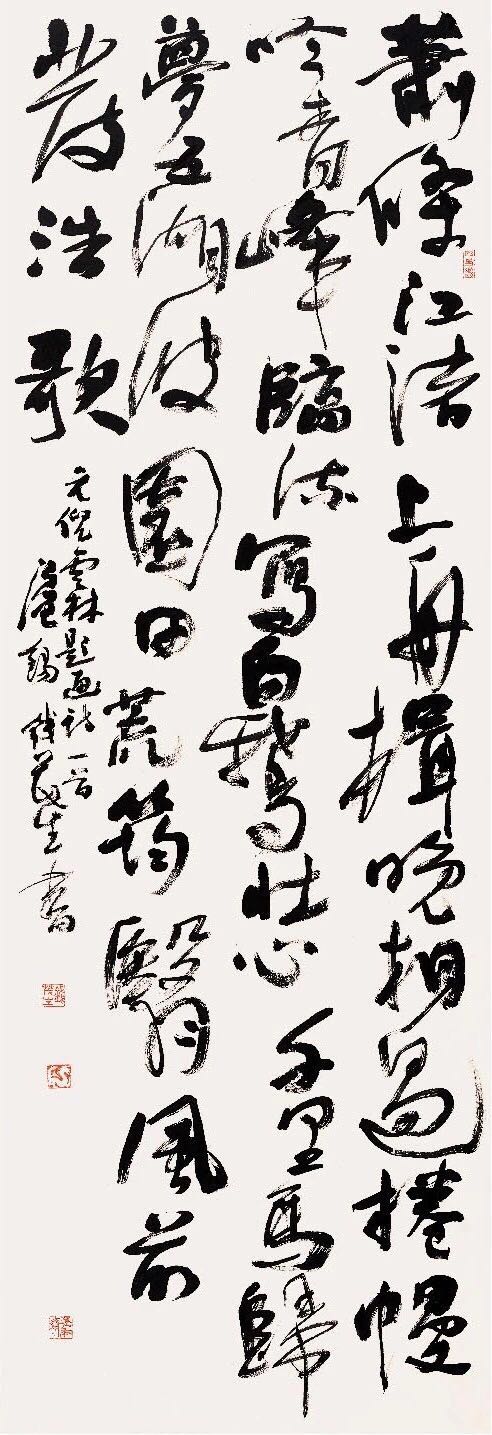 蕭條江渚上舟楫晚相過捲幔
吟青峰臨流寫白鵝壯心千里馬歸
夢五湖波園田荒筠翳風前
發浩歌
元倪雲林題畫詩一首
錢茂生書